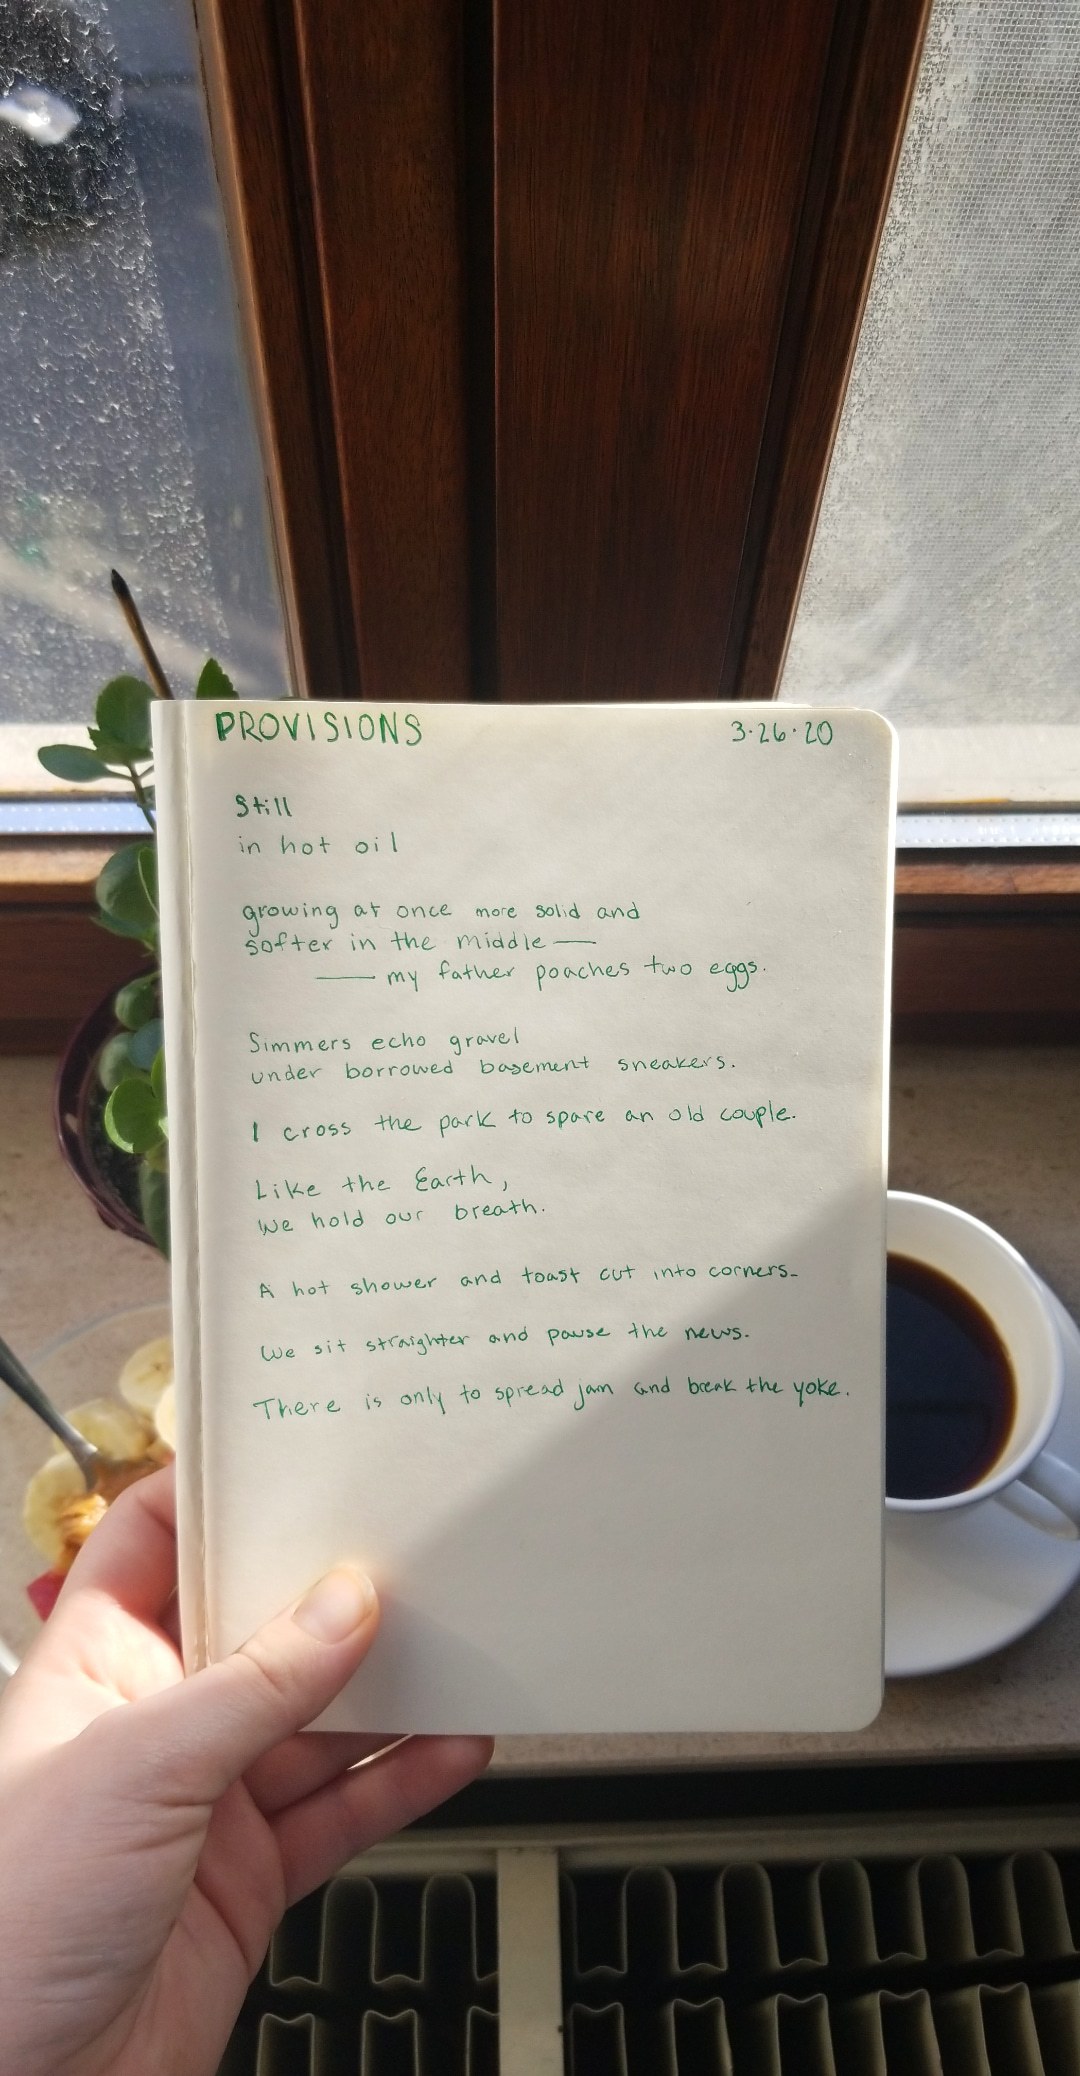 PROVISIONS 3·26·20
Still
in hot oil
growing at once more solid and
softer in the middle —
— my father poaches two eggs.
Simmers echo gravel
under borrowed basement sneakers.
I cross the park to spare an old couple.
Like the Earth,
we hold our breath.
A hot shower and toast cut into corners-
We sit straighter and pause the news.
There is only to spread jam and break the yoke.